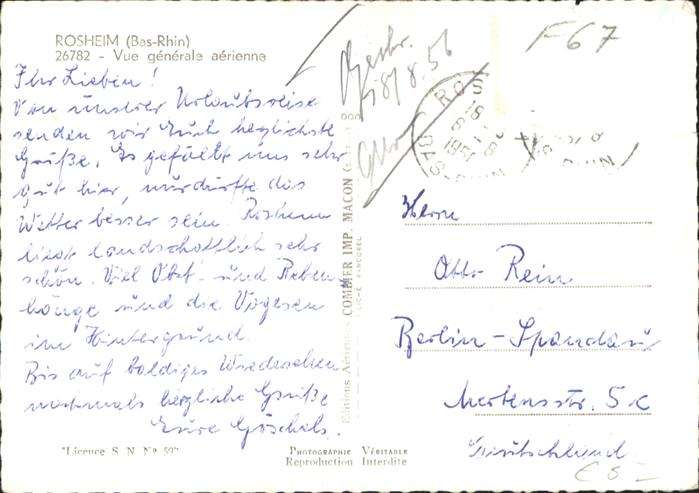 ROSHEIM (Bas-Rhin)
26782 - Vue générale aérienne
Ihr Lieben!
Von unsrer Urlaubsreise
senden wir Euch herzlichste
Grüße. Es gefällt uns sehr
gut hier, nur dürfte das
Wetter besser sein. Rosheim
liegt landschaftlich sehr
schön. Viel Obst- und Reben-
hänge und die Vogesen
im Hintergrund.
Bis auf baldiges Wiedersehen
nochmals herzliche Grüße
Eure Göschels.
"Licence S N Nº 59"
PHOTOGRAPHIE VÉRITABLE
Reproduction Interdite
COMBIER IMP. MACON
18/8.56
F67
ROS
Herrn
Otto Rein
Berlin-Spandau
Mertensstr. 5c
Deutschland